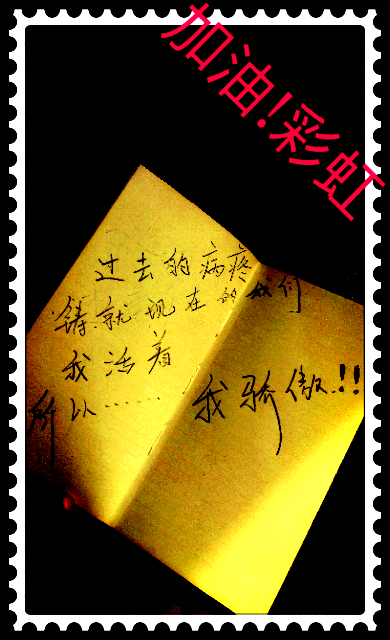 加油!彩虹
过去的病疼
铸就现在的我们
我活着
所以······我骄傲!!